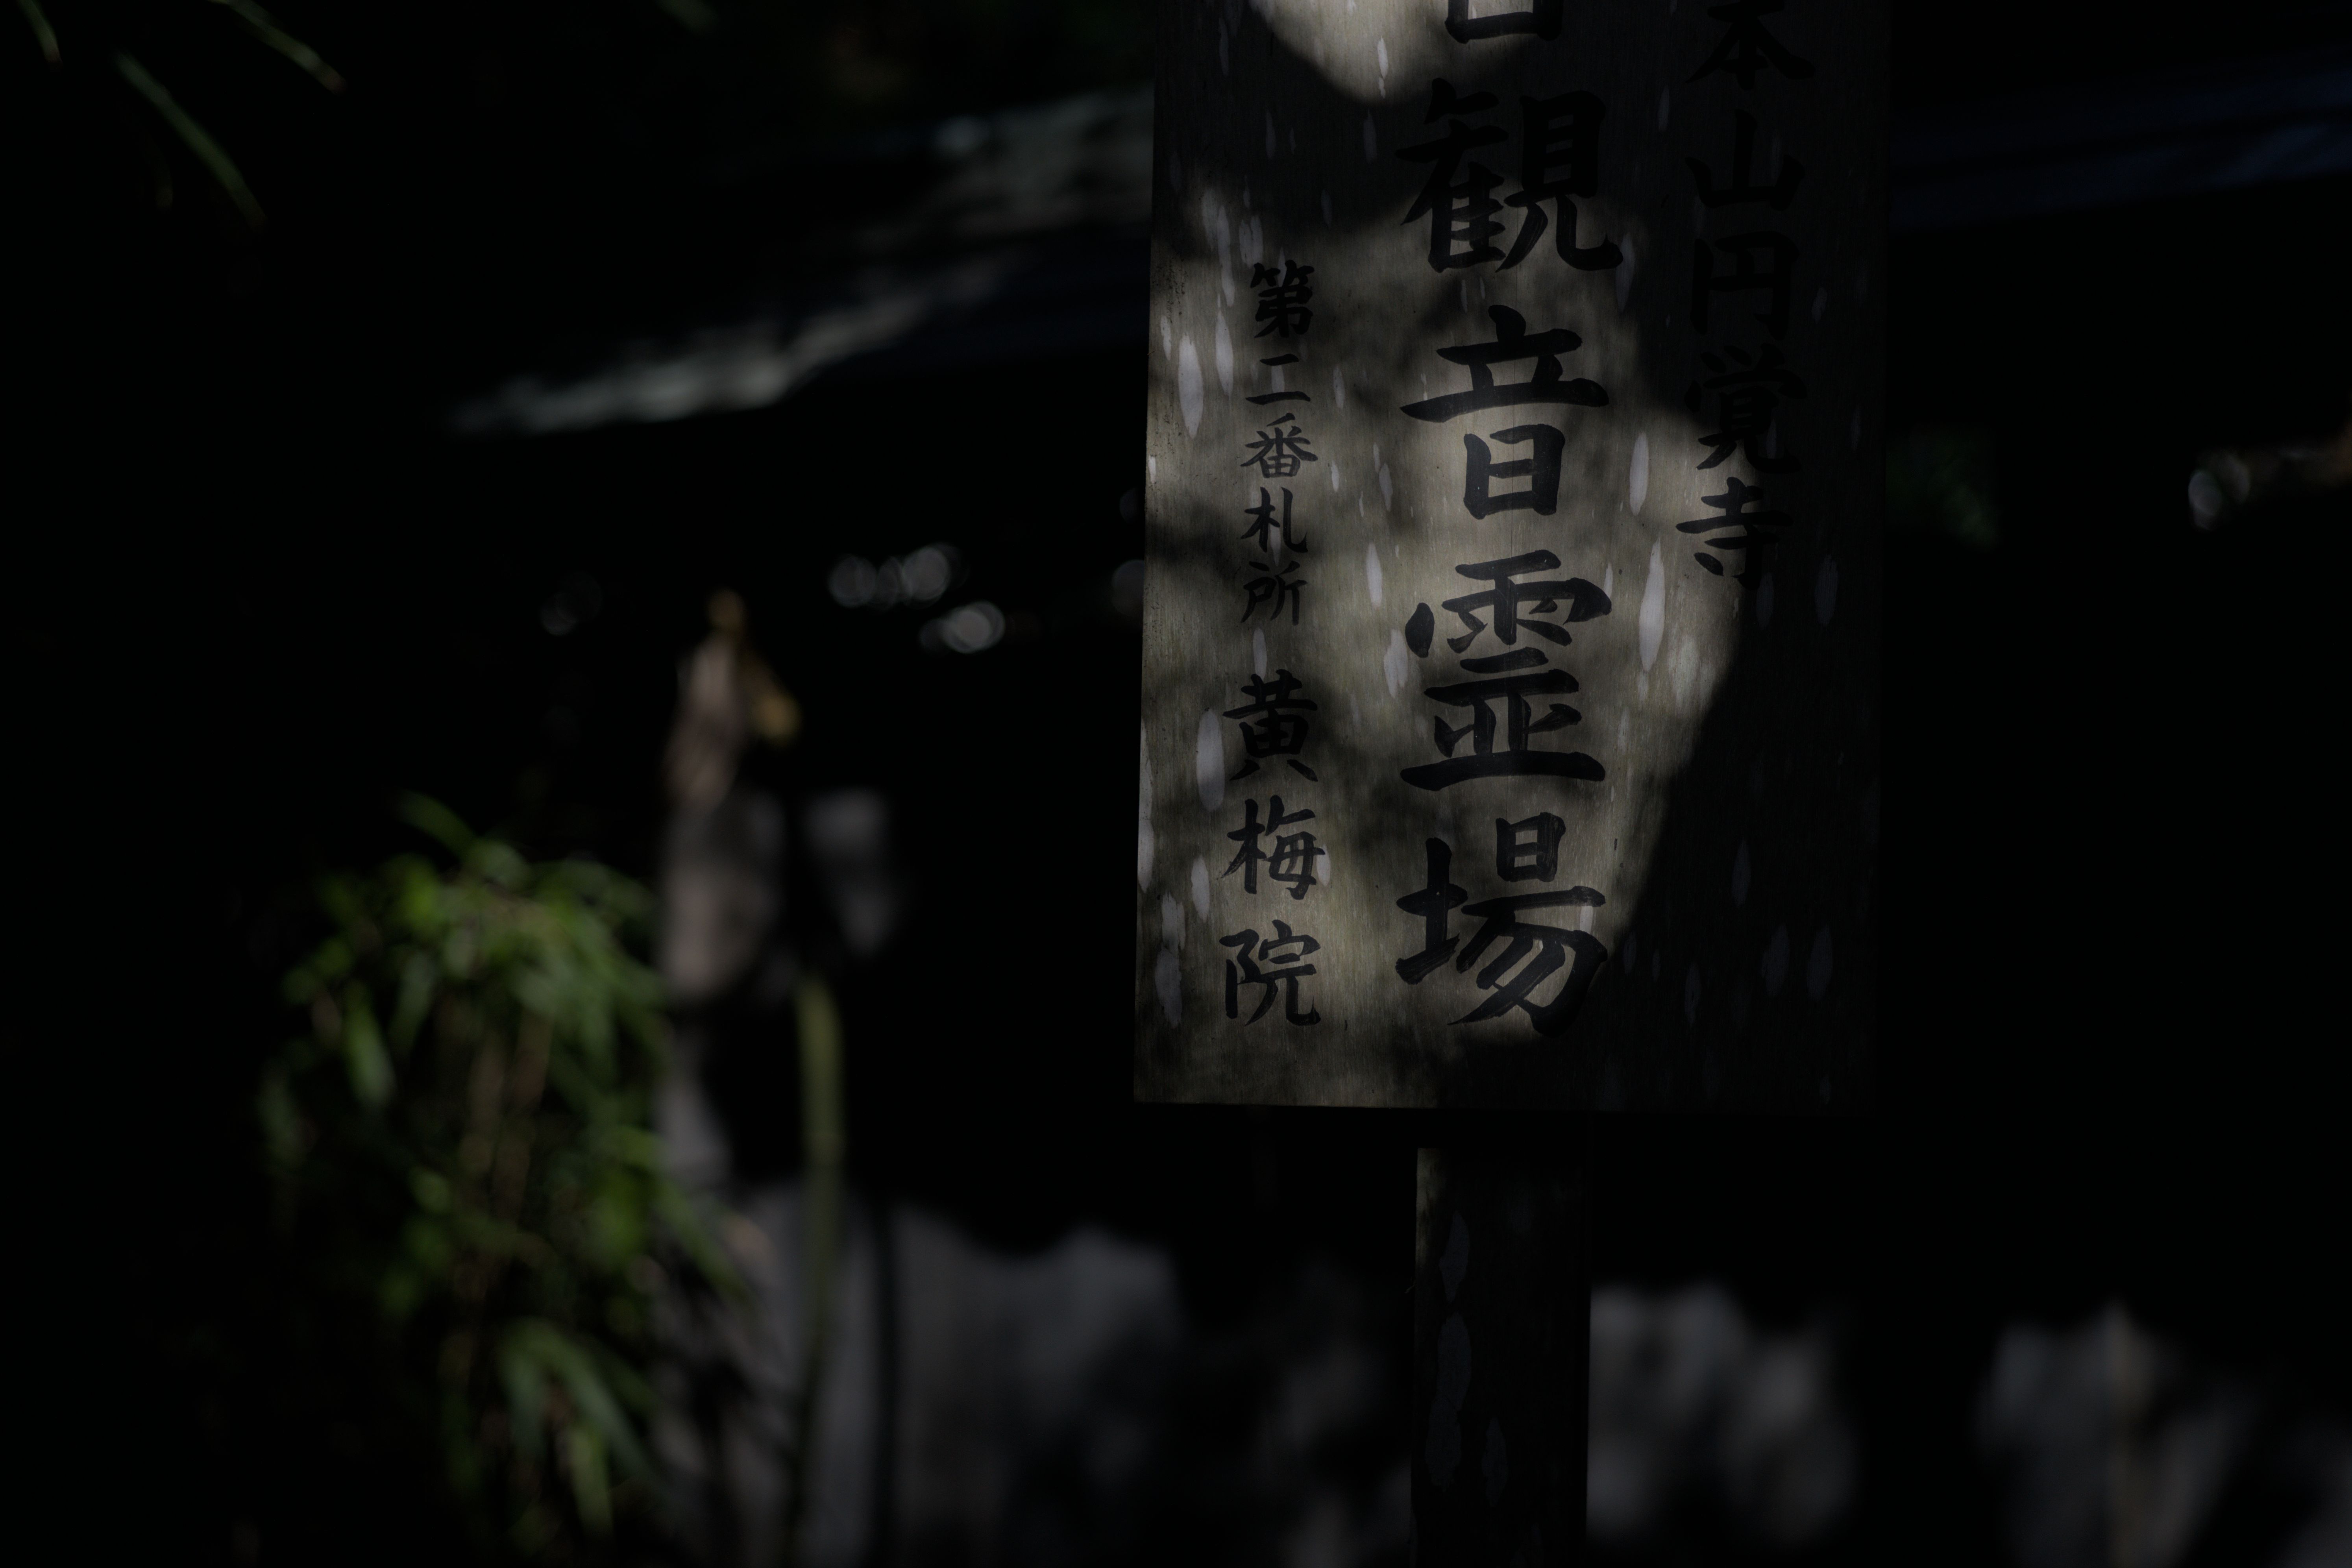 本山円覚寺
観音霊場
第二番札所 黄梅院